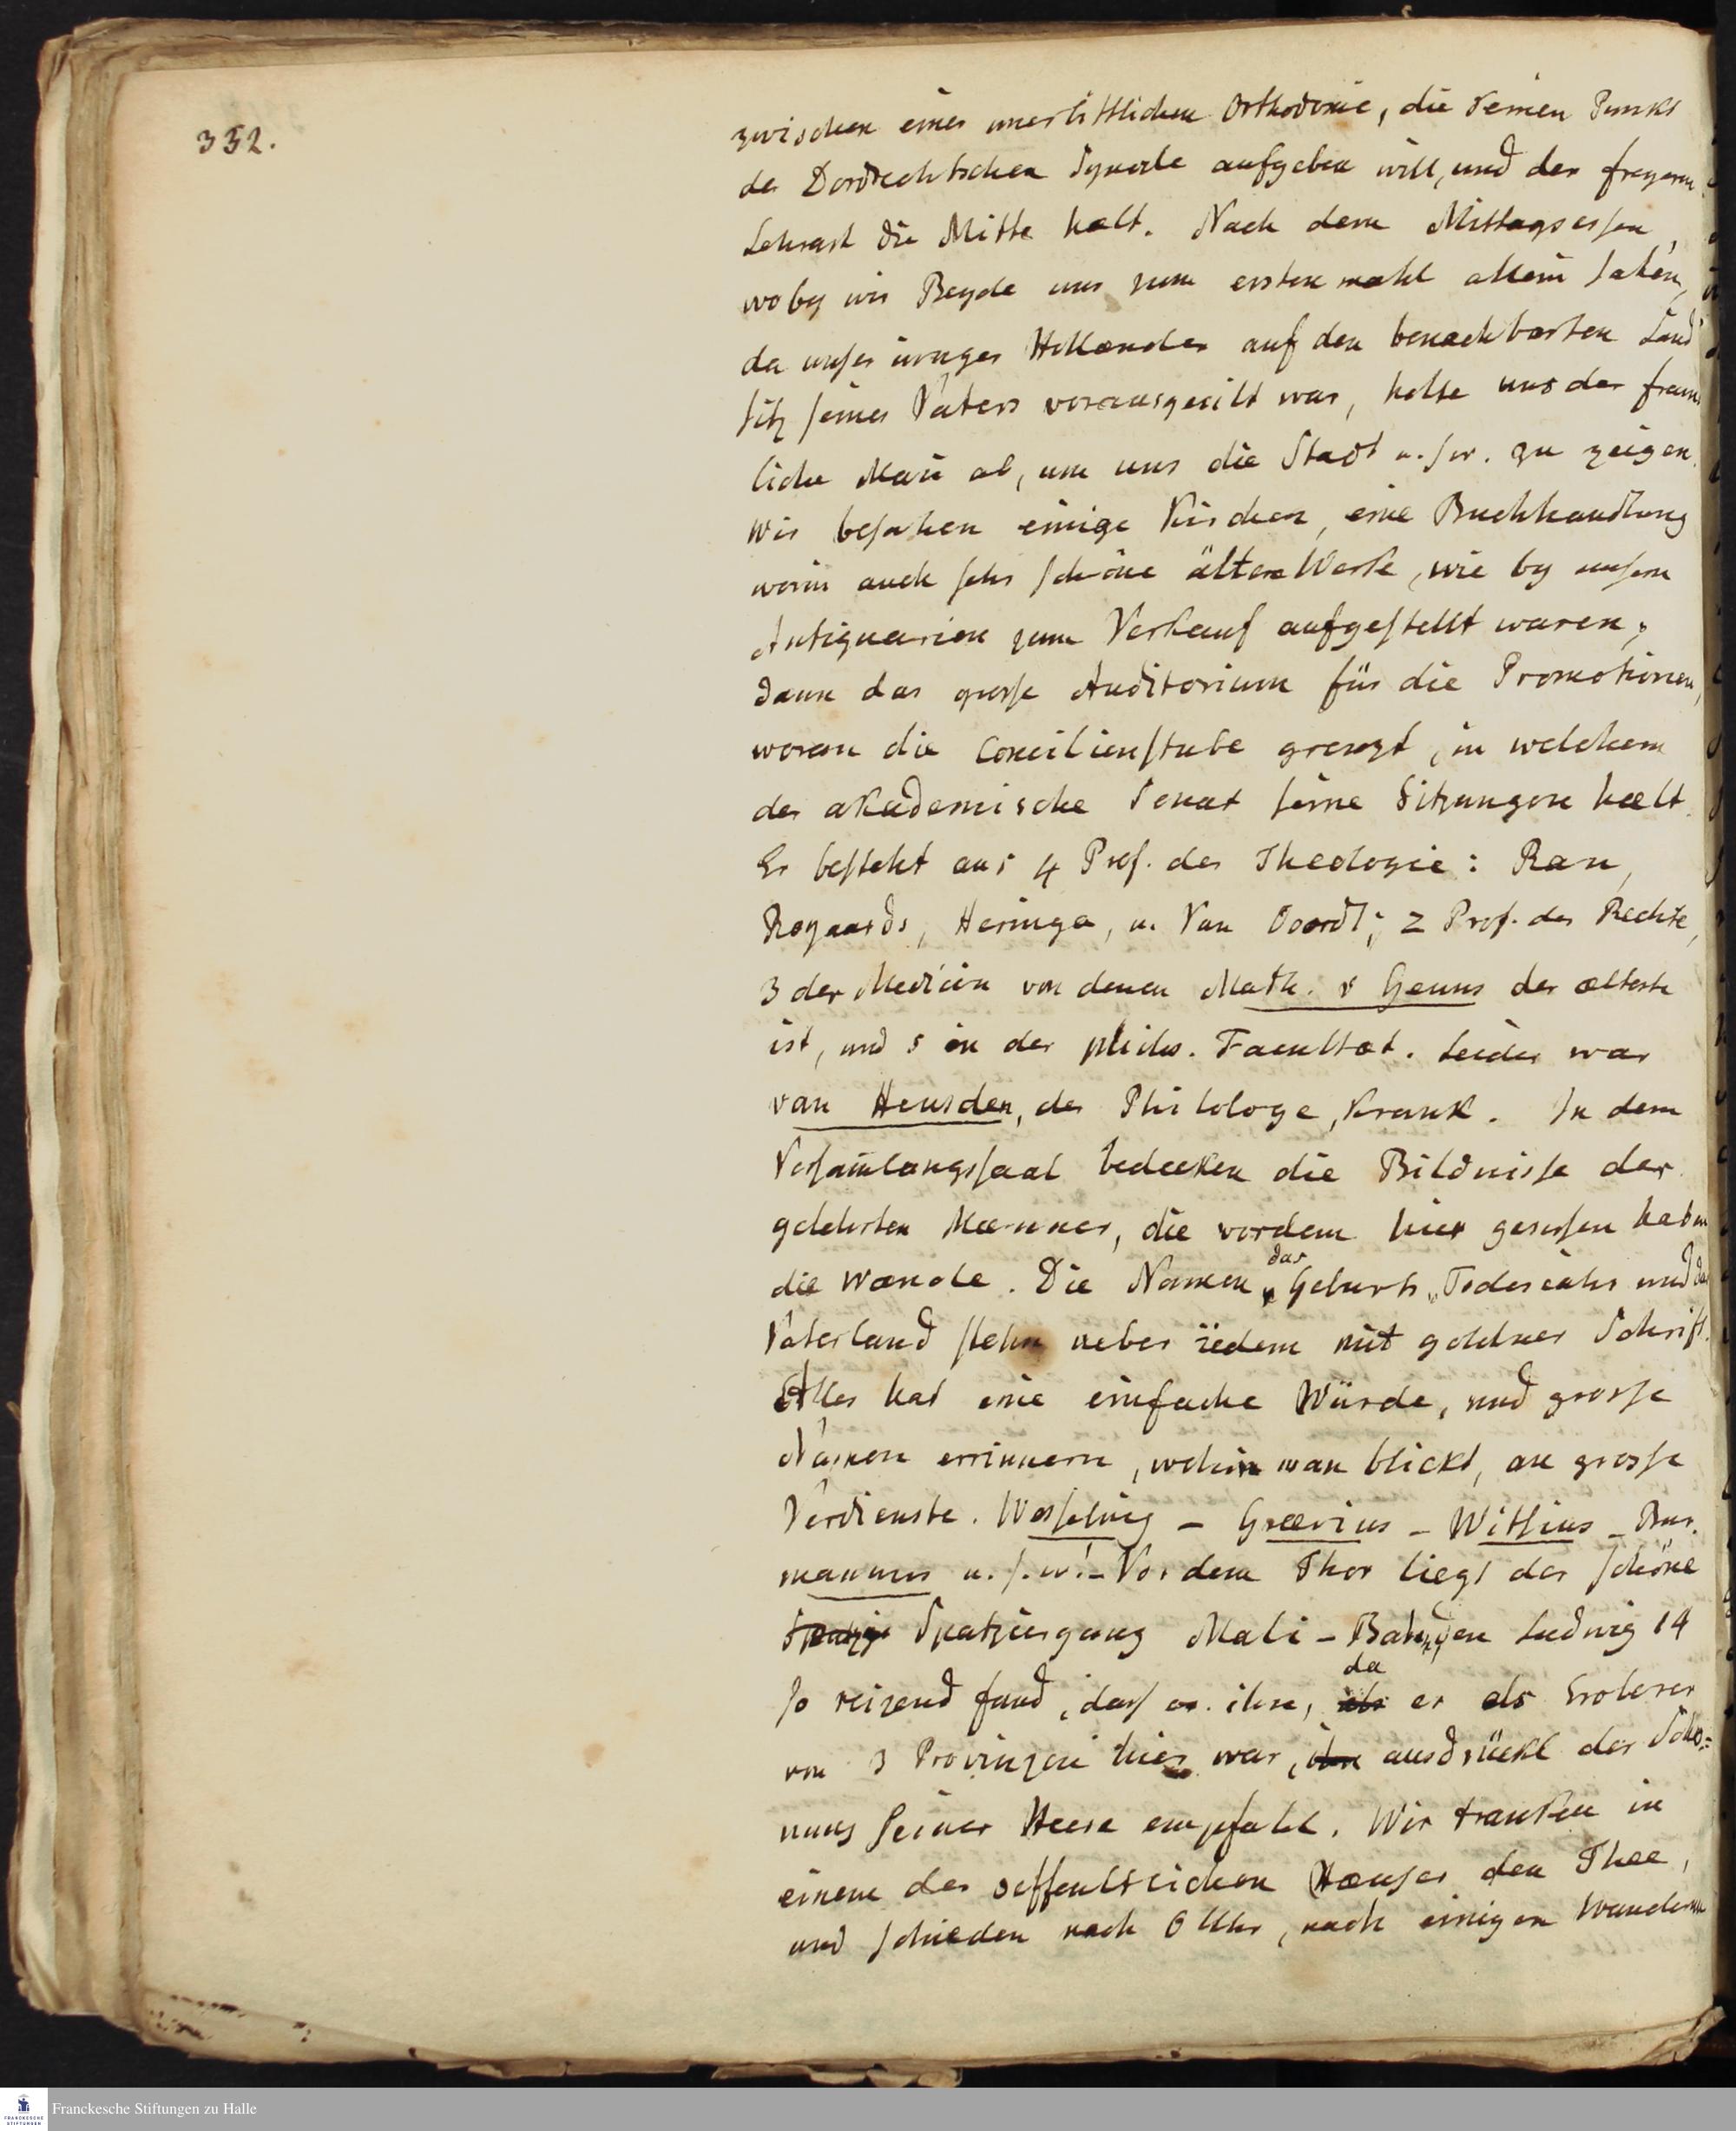 352.
zwischen einer unerbittlichen Orthodoxie, die keinen Punkt
der Dordrechtschen Synode aufgeben will, und der freyern
Lehrart die Mitte hælt. Nach dem Mittagsessen,
wobey wir Beyde uns zum ersten mahl allein sahen,
da unser iunger Hollænder auf den benachbarten Land
sitz seines Vaters vorausgeeilt war, holte uns der freund
liche Man̄ ab, um uns die Stadt u. s. w. zu zeigen.
Wir besahen einige Kirchen, eine Buchhandlung
worin auch sehr schöne ältere Werke, wie bey unsern
Antiquarien zum Verkauf aufgestellt waren;
dann das grosse Auditorium für die Promotionen,
woran die Concilienstube grenzt, in welchem
der akademische Senat seine Sitzungen hælt.
Er besteht aus 4 Prof. der Theologie: Rau,
Royaards, Heringa, u. Van Oordt; 2 Prof. der Rechte,
3 der Medicin von denen Math. v Geuns der ælteste
ist, und 5 in der philos. Facultæt. Leider war
van Heusden, der Philologe, krank. In dem
Versam̄lungssaal bedecken die Bildnisse der
gelehrten Mænner, die vordem hier gesessen haben
die Wænde. Die Namen, das Geburts „Todesiahr und das
Vaterland stehn ueber iedem mit goldner Schrift.
Alles hat eine einfache Würde, und grosse
Namen errinnern, wohin man blickt, an grosse
Verdienste. Wesseling – Grævius – Witsius – Bur-
mannus u. s. w. – Vor dem Thor liegt der schöne
Spatzie Spatziergang Mali-Bahn, den Ludwig 14
so reizend fand, dass er ihn, als da er als Eroberer
von 3 Provinzen hier war, ihn ausdrückl der Scho=
nung seiner Heere empfahl. Wir tranken in
einem der oeffentlichen Hæuser den Thee,
und schieden nach 6 Uhr, nach einigen Wandern
Franckesche Stiftungen zu Halle